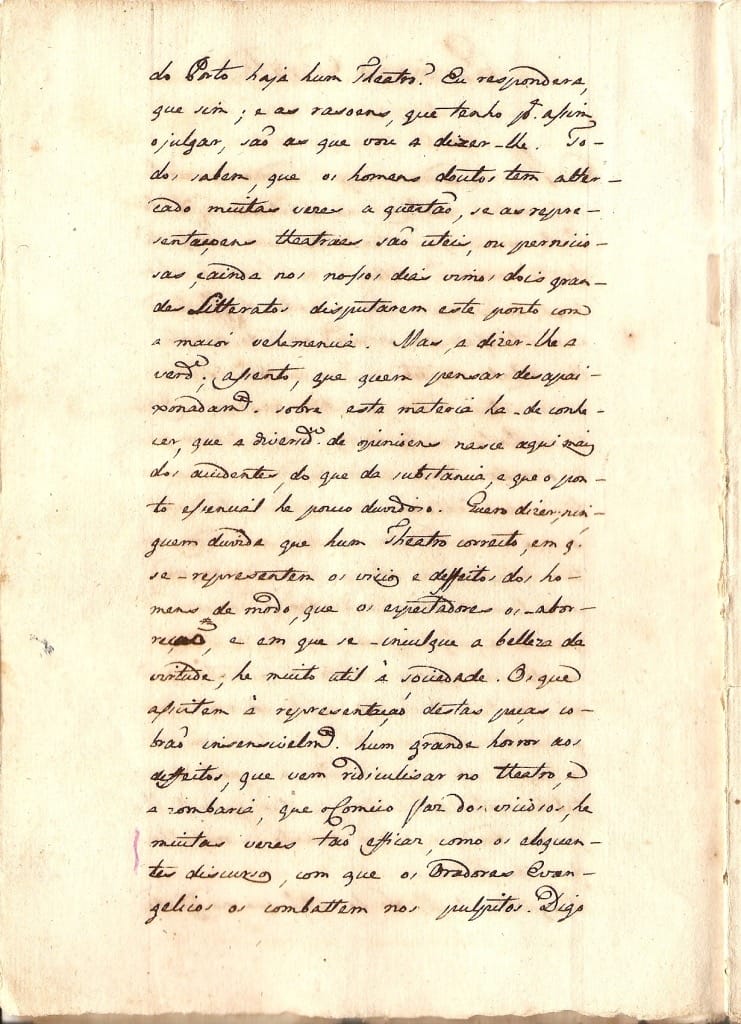 do Porto haja hum Theatro? Eu respondera,
que sim; e as rasoens, que tenho pª. assim
o julgar, saõ as que vou a dizer-lhe. To-
dos sabem, que os homens doutos tem alter-
cado muitas vezes a questaõ, se as repre-
sentaçoens theatraes saõ uteis, ou pernicio-
sas, e ainda nos nossos dias vimos dois gran-
des Litteratos disputarem este ponto com
a maior vehemencia. Mas, a dizer-lhe a
verdᵉ., assento, que quem pensar desapai-
xonadamᵉ. sobre esta materia ha-de conhe-
cer, que a diversidᵉ. de opinioens nasce aqui mais
dos accidentes, do que da substancia, e que o pon-
to essencial he pouco duvidoso. Quero dizer, nin-
guem duvida que hum Theatro correcto, em q̃.
se-representem os vicios e deffeitos dos ho-
mens de modo, que os espectadores os-abor-
reçaõ, e em que se-inculque a belleza da
virtude, he muito util à sociedade. Os que
assistem à representaçaõ destas peças co-
braõ insensivelmᵉ. hum grande horror aos
deffeitos, que vem ridiculisar no theatro, e
a zombaria, que o Comico faz dos viciosos, he
muitas vezes taõ efficaz, como os eloquen-
tes discursos, com que os Oradores Evan-
gelicos os combattem nos pulpitos. Digo